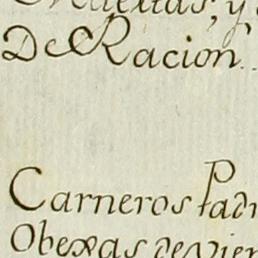 De Racion.
Carneros Padr
Obexas de vien